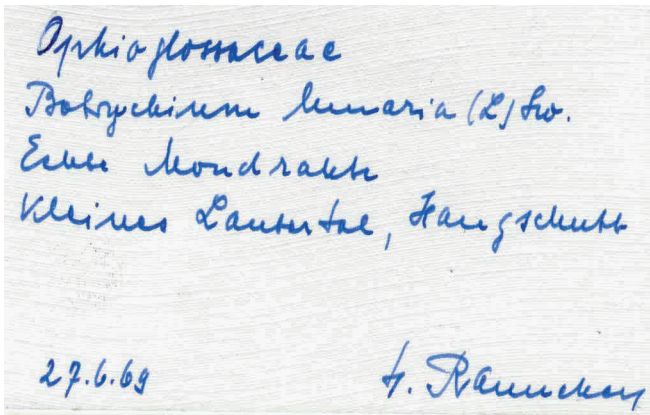 Ophioglossaceae
Botrychium lunaria (L) Sw.
Echte Mondraute
Kleines Lautertal, Hangschutt
27.6.69